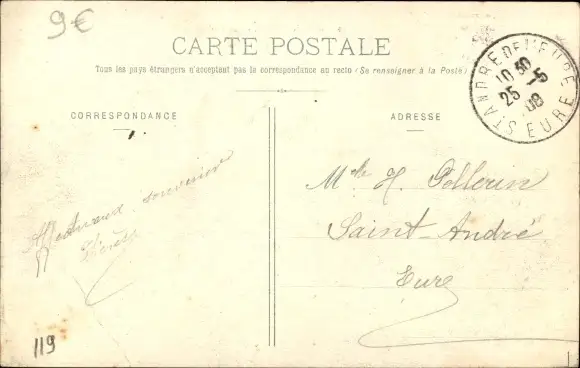 9€
CARTE POSTALE
Tous les pays étrangers n'acceptent pas la correspondance au recto (Se renseigner à la Poste)
CORRESPONDANCE
ADRESSE
ST ANDRE DE L'EURE
10 30
25 -5
08
EURE
Affectueux souvenir
Mlle H. Pellerin
Saint-André
Eure
119